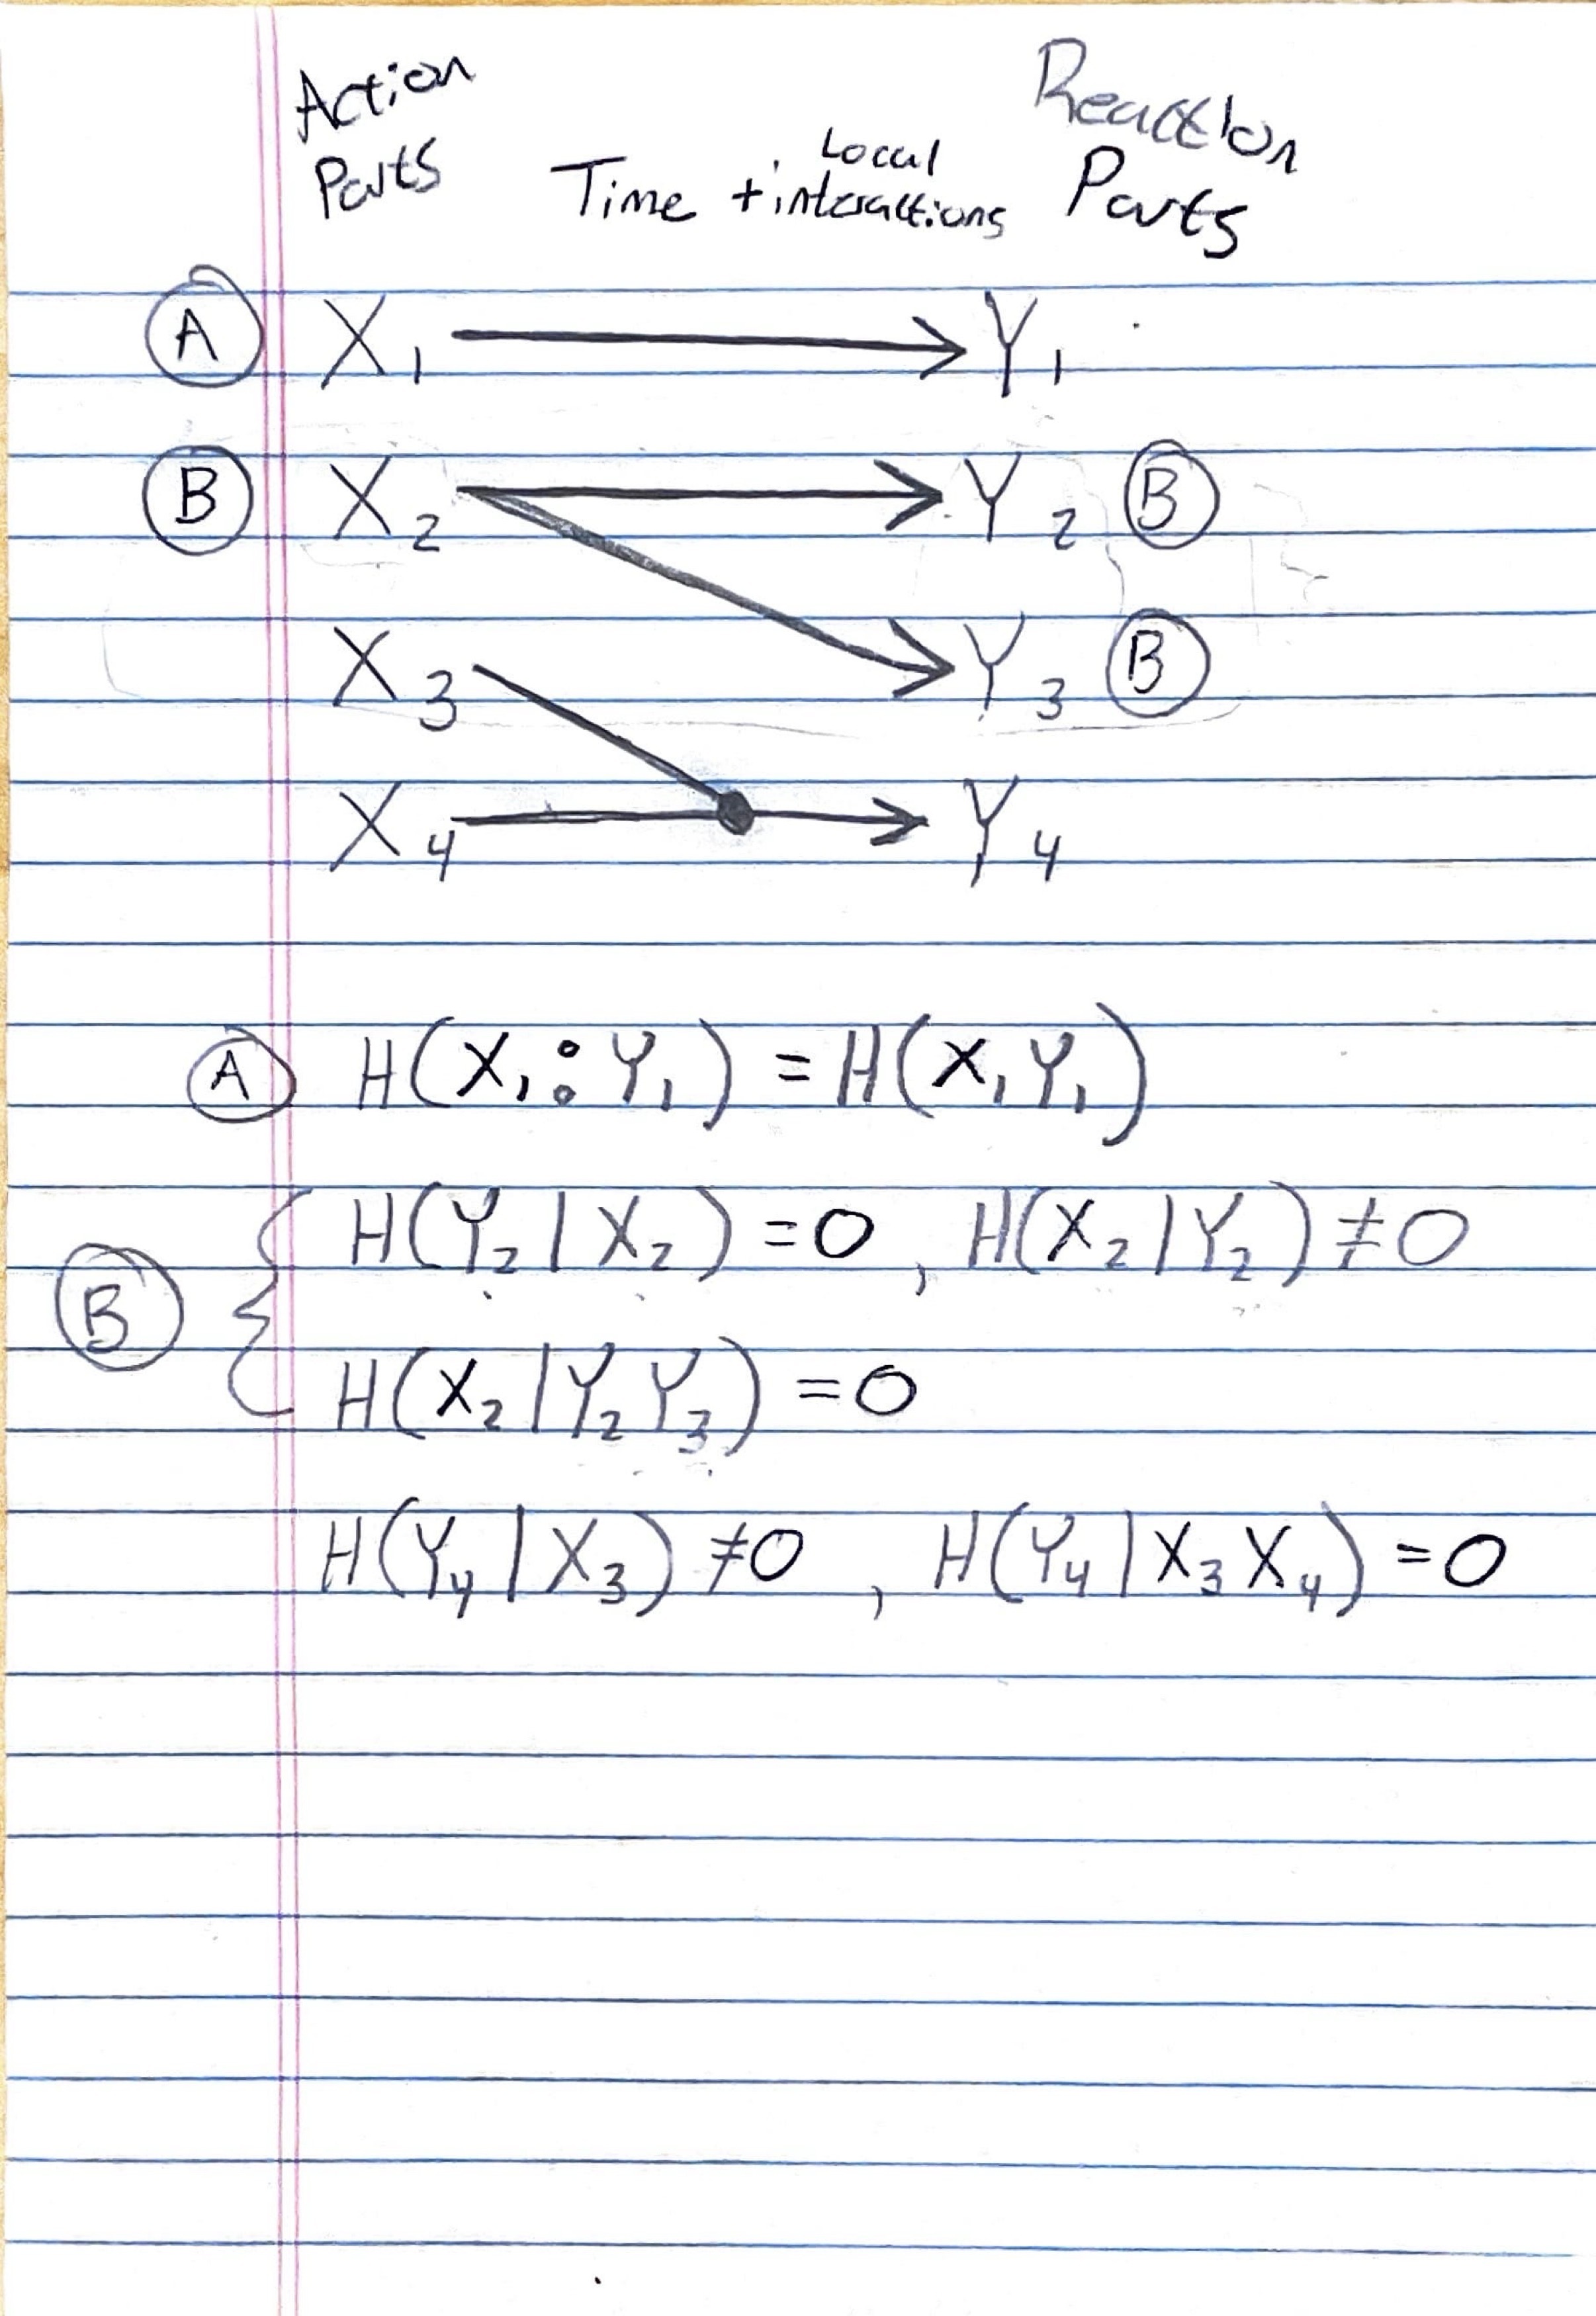 Action Reaction
Parts Time + Local interactions Parts
Ⓐ X₁ → Y₁
Ⓑ X₂ → Y₂ Ⓑ
X₃ Y₃ Ⓑ
X₄ → Y₄
Ⓐ H(X₁:Y₁) = H(X₁Y₁)
Ⓑ { H(Y₂|X₂) = 0, H(X₂|Y₂) ≠ 0
H(X₂|Y₂Y₃) = 0
H(Y₄|X₃) ≠ 0, H(Y₄|X₃X₄) = 0